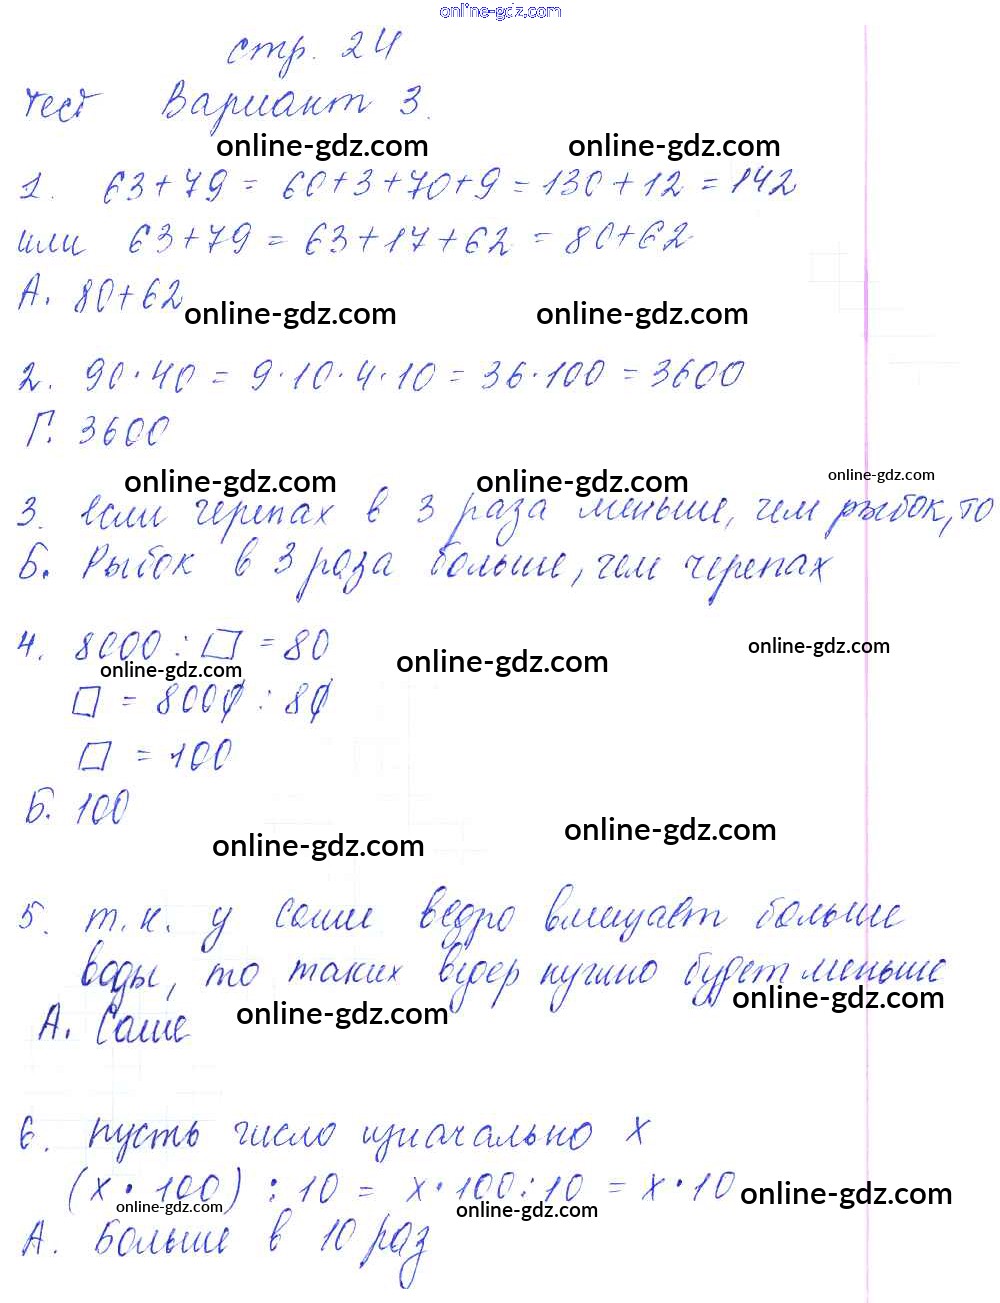 online-gdz.com
стр. 24
тест Вариант 3.
online-gdz.com online-gdz.com
1. 63+79 = 60+3+70+9 = 130+12 = 142
или 63+79 = 63+17+62 = 80+62
А. 80+62
online-gdz.com online-gdz.com
2. 90·40 = 9·10·4·10 = 36·100 = 3600
Г. 3600
online-gdz.com online-gdz.com online-gdz.com
3. если черепах в 3 раза меньше, чем рыбок, то
Б. Рыбок в 3 раза больше, чем черепах
4. 8000 : □ = 80
online-gdz.com online-gdz.com online-gdz.com
□ = 8000 : 80
□ = 100
Б. 100
online-gdz.com online-gdz.com
5. т.к. у Саши ведро вмещает больше
воды, то таких вёдер нужно будет меньше
online-gdz.com online-gdz.com
А. Саше
6. пусть число изначально х
(х · 100) : 10 = х·100:10 = х·10
online-gdz.com online-gdz.com online-gdz.com
А. Больше в 10 раз